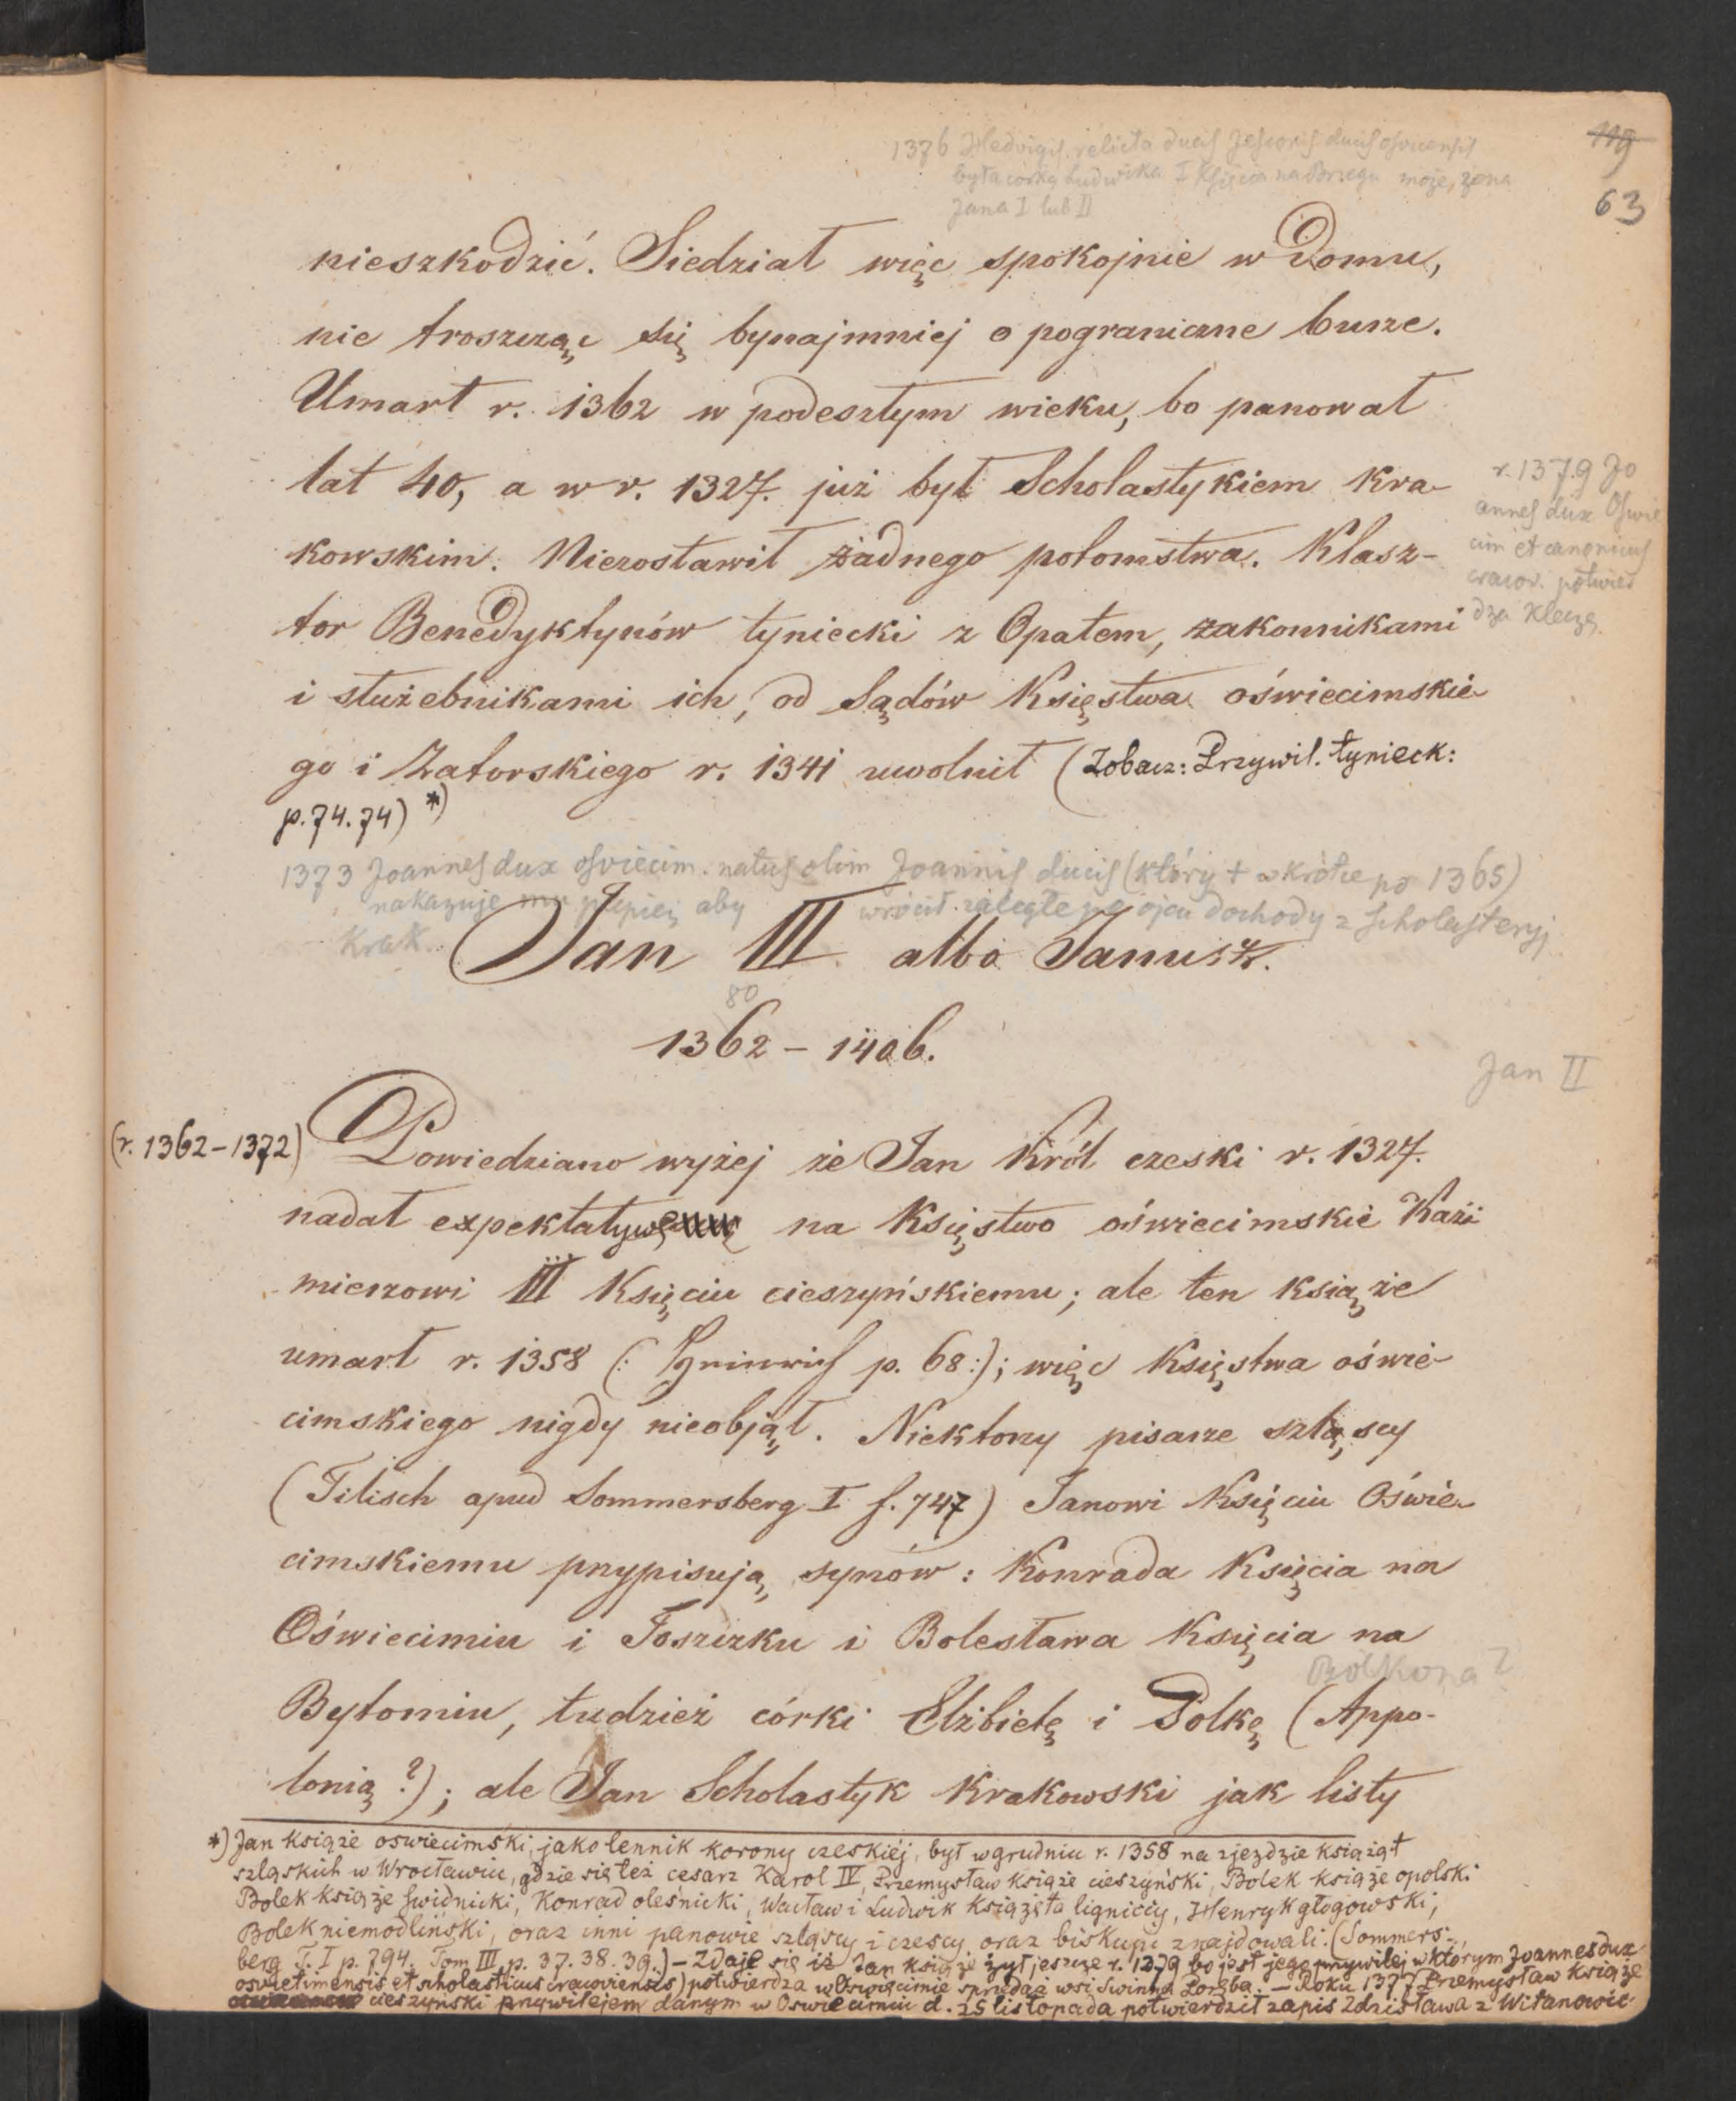 1376 Hedvigis relicta ducis Jesconis ducis osvicensis
była corką Ludwika I Księcia na Brzegu może, żona
Jana I lub II
119
63
nieszkodzić. Siedział więc spokojnie w Domu,
nie troszcząc się bynajmniej o pograniczne burze.
Umarł r. 1362 w podeszłym wieku, bo panował
lat 40, a w r. 1327. już był Scholastykiem Kra-
kowskim. Niezostawił żadnego potomstwa. Klasz-
tor Benedyktynów tyniecki z Opatem, zakonnikami
i służebnikami ich, od Sądów Księstwa oświecimskie-
go i Zatorskiego r. 1341 uwolnił (Zobacz: Przywil. tynieck:
p. 74. 74) *)
r. 1379 Jo
annes dux Oswie
cim et canonicus
cracov. potwier
dza Kleczę
1373 Joannes dux osviecim. natus olim Joannis ducis (który + wkrótce po 1365)
nakazuje aby wrócił zaległe po ojcu dochody z Scholasteryj
Krak.
Jan III albo Janusz.
80
1362 – 1406.
Jan II
(r. 1362–1372)
Powiedziano wyżej że Jan Król czeski r. 1327.
nadał expektatywę na Księstwo oświecimskie Kazi-
mierzowi III Księciu cieszyńskiemu; ale ten książe
umarł r. 1358 (: p. 68:); więc Księstwa oświe-
cimskiego nigdy nieobjął. Niektórzy pisarze szląscy
(Tilisch apud Sommersberg I f. 747) Janowi Księciu Oświe-
cimskiemu przypisują synów: Konrada Księcia na
Oświecimiu i Toszczku i Bolesława Księcia na
Bolkona?
Bytomiu, tudzież córki Elżbietę i Polkę (Appo-
lonią?); ale Jan Scholastyk Krakowski jak listy
*) Jan książe oswiecimski, jako lennik korony czeskiéj, był w grudniu r. 1358 na zjezdzie książąt
szląskich w Wrocławiu, gdzie się też cesarz Karol IV, Przemysław książe cieszyński, Bolek książe opolski
Bolek książe swidnicki, Konrad oleśnicki, Wacław i Ludwik książęta ligniccy, Henryk głogowski,
Bolek niemodliński, oraz inni panowie szląscy i czescy oraz biskupi znajdowali. (Sommers-
berg T. I p. 794. Tom III p. 37. 38. 39.) – Zdaje się iż Jan książe żył jeszcze r. 1379 bo jest jego przywilej w którym Joannes dux
osvietimensis et scholasticus cracoviensis) potwierdza w Oswięcimie sprzedaż wsi Swinna Poręba. – Roku 1377 Przemysław książe
cieszyński przywilejem danym w Oswiecimiu d. 25 listopada potwierdził zapis Zdzisława z Witanowic